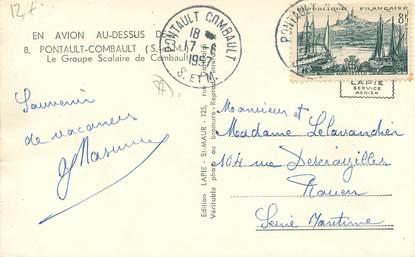 12f
EN AVION AU-DESSUS DE
8, PONTAULT-COMBAULT (S.-M.)
Le Groupe Scolaire de Combault
PONTAULT COMBAULT
18
17 -6
1957
S. ET M.
PONTAULT
RÉPUBLIQUE FRANÇAISE
8F
LAPIE
SERVICE
AERIEN
Souvenir
de vacances
Edition LAPIE - St-MAUR - 125,
Véritable photo au bromure - Reproduction
Monsieur et
Madame Lelavandier
104 rue Descroizilles
Rouen
Seine Maritime